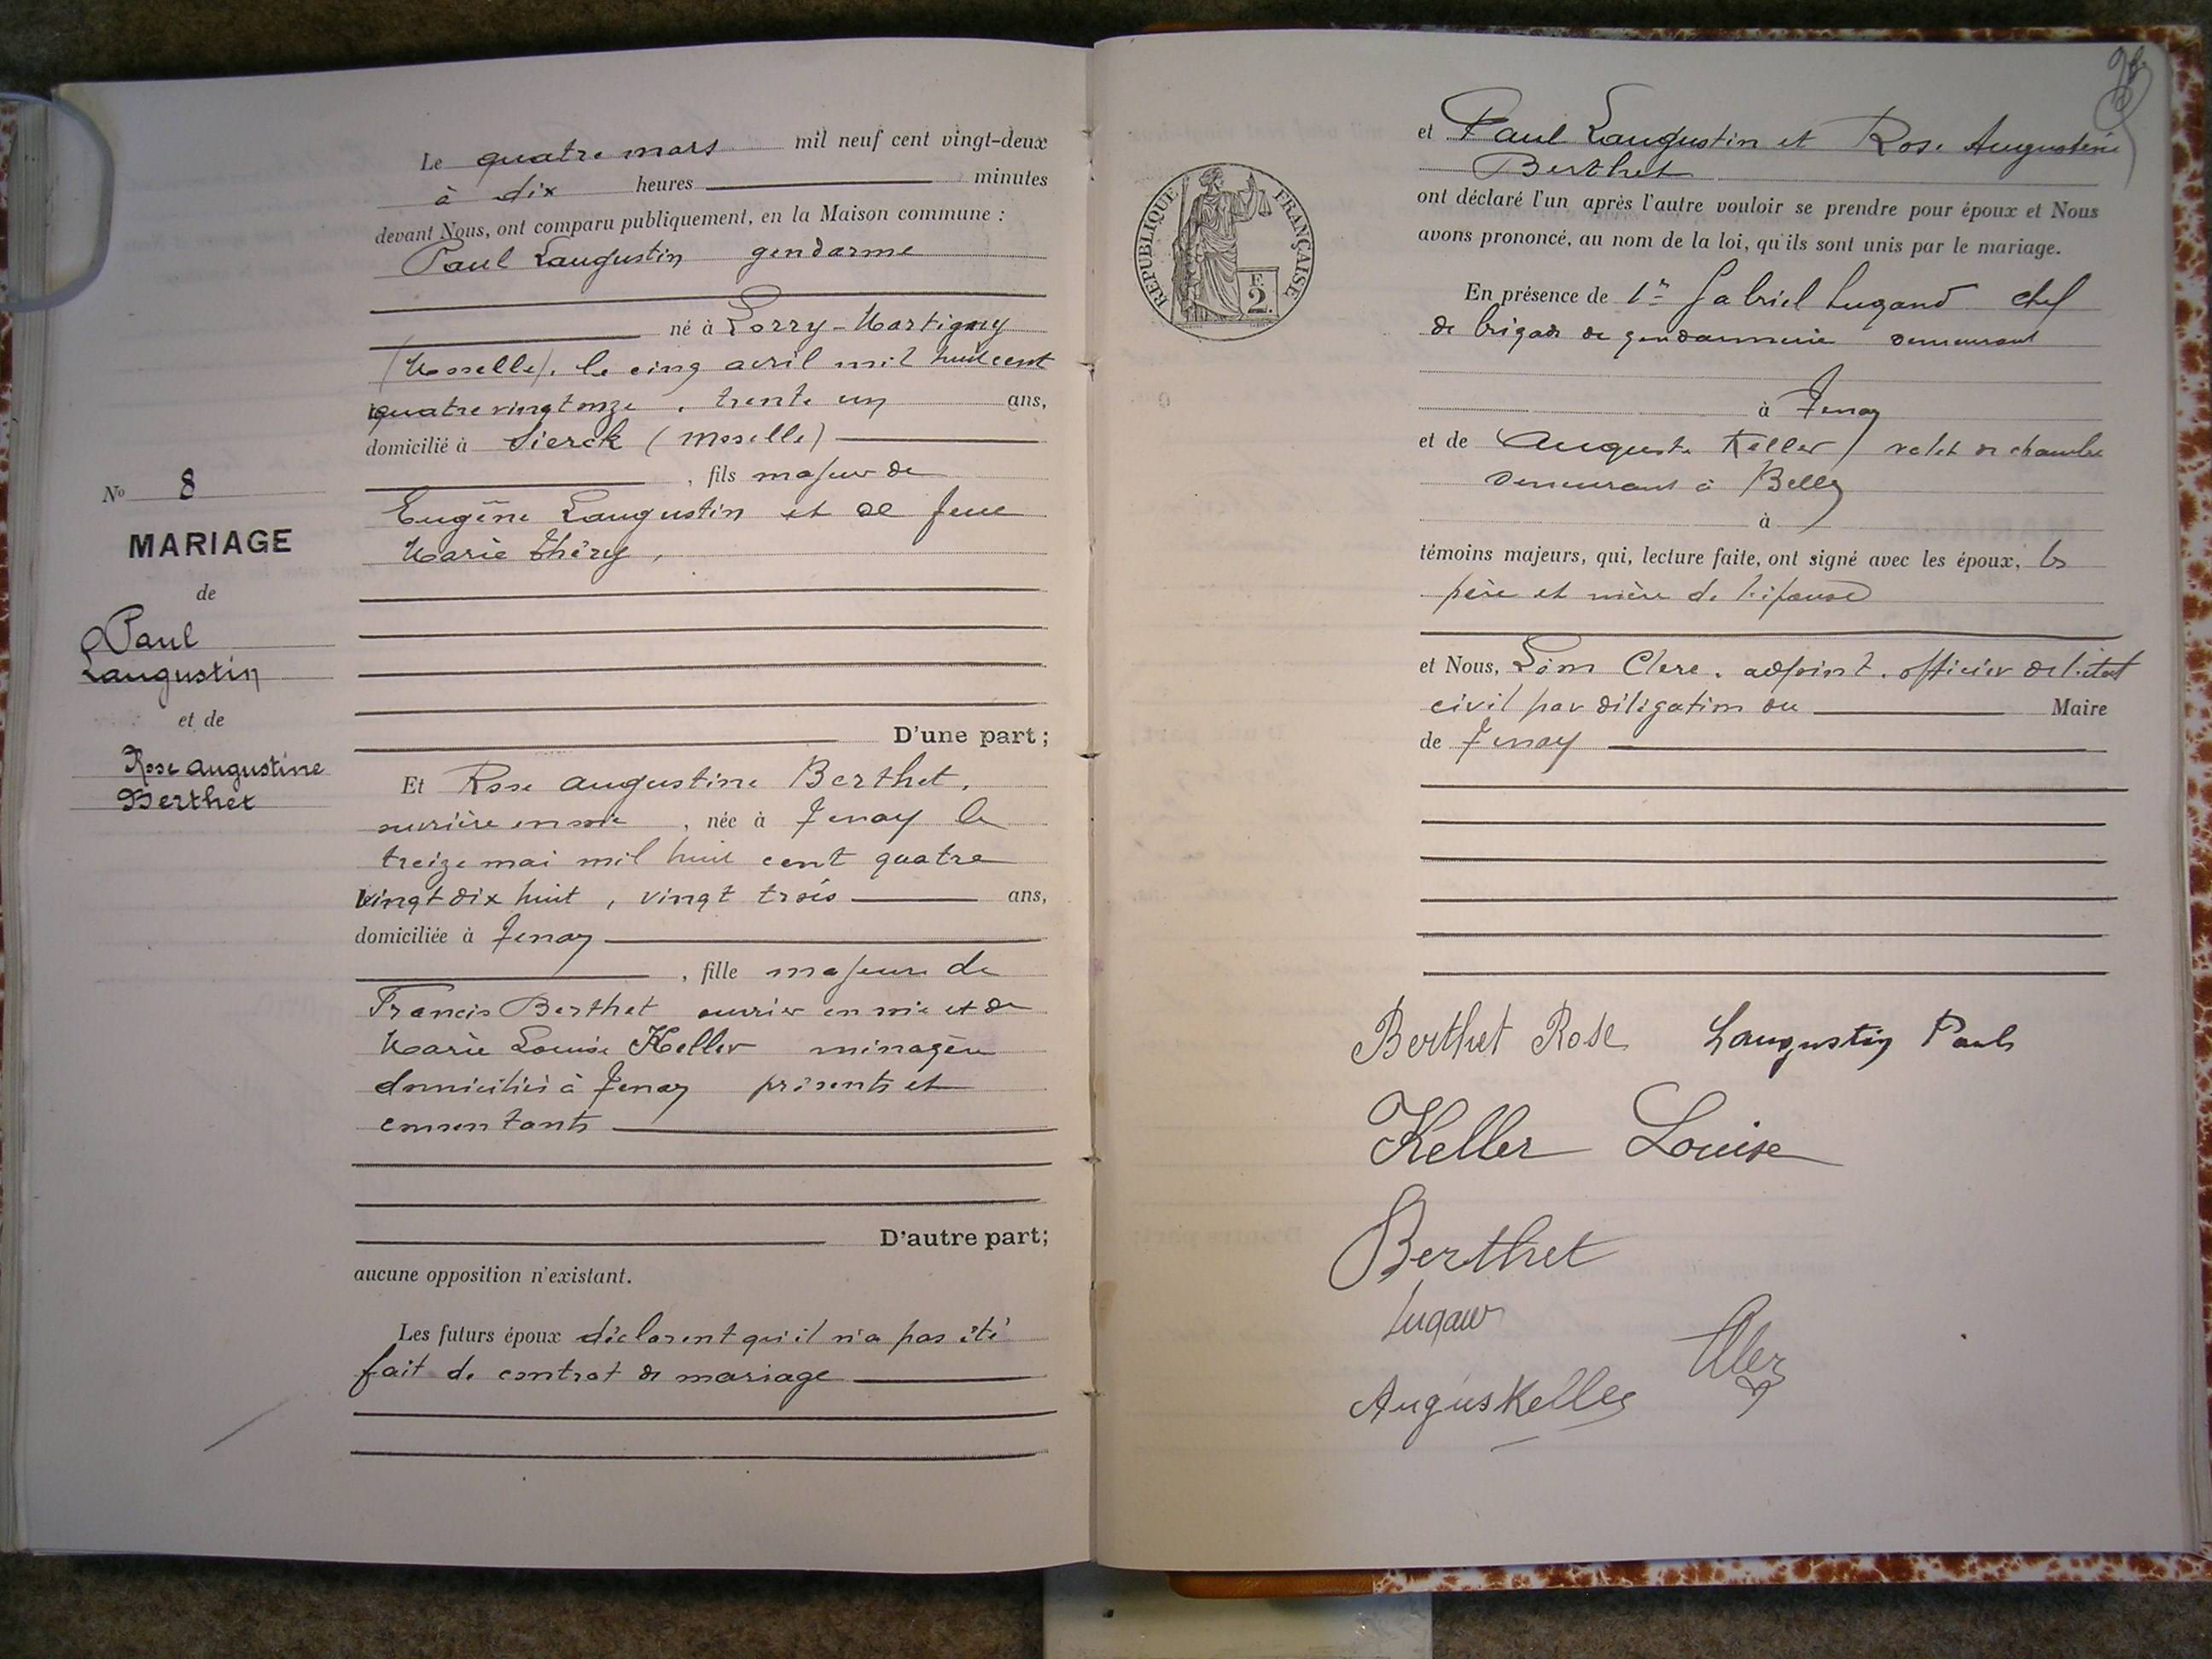 Le quatre mars mil neuf cent vingt-deux
à dix heures minutes
devant Nous, ont comparu publiquement, en la Maison commune :
Paul Laugustin gendarme
né à Lorry-Martigny
(Moselle), le cinq avril mil huit cent
quatre vingt onze, trente un ans,
domicilié à Sierck (Moselle)
, fils majeur de
Eugène Laugustin et de feue
Marie Théry,
D'une part ;
Et Rose Augustine Berthet,
ouvrière en soie, née à Tenay le
treize mai mil huit cent quatre
vingt dix huit, vingt trois ans,
domiciliée à Tenay
, fille majeure de
Francis Berthet ouvrier en soie et de
Marie Louise Keller ménagère
domiciliés à Tenay présents et
consentants
D'autre part;
aucune opposition n'existant.
Les futurs époux déclarent qu'il n'a pas été
fait de contrat de mariage
No 8
MARIAGE
de
Paul
Laugustin
et de
Rose Augustine
Berthet
REPUBLIQUE FRANÇAISE
F.
2.
et Paul Laugustin et Rose Augustine
Berthet
ont déclaré l'un après l'autre vouloir se prendre pour époux et Nous
avons prononcé, au nom de la loi, qu'ils sont unis par le mariage.
En présence de Gabriel Lugand chef
de brigade de gendarmerie demeurant
à Tenay
et de Auguste Keller valet de chambre
demeurant à Belley
à
témoins majeurs, qui, lecture faite, ont signé avec les époux, les
père et mère de l'épouse
et Nous, Léon Clerc, adjoint, officier de l'état
civil par délégation du Maire
de Tenay
Berthet Rose Laugustin Paul
Keller Louise
Berthet
Lugand
August Keller